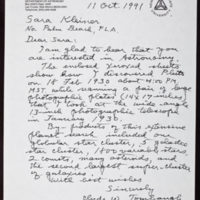 DEPARTMENT OF ASTRONOMY
11 Oct. 1991
Sara Kleiner
No. Palm Beach, FLA.
Dear Sara:
I am glad to hear that you are
interested in Astronomy.
The enclosed Xeroxed sheets
show how I discovered Pluto
on 18 Feb. 1930 about 4:00 PM
MST while scanning a pair of large
photographic plates (14x17 inches)
that I took at the wide angle
13-inch photographic telescope
in January 1930.
By-products of this extensive
planet search included a
globular star cluster, 5 galactic
star clusters, 1800 variable stars
2 comets, many asteroids, and
the second largest super-cluster
of galaxies.
With best wishes
Sincerely
Clyde W. Tombaugh